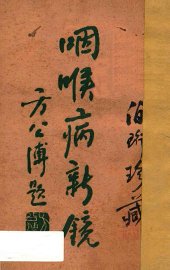 咽喉病新鏡
方公溥題
珍藏